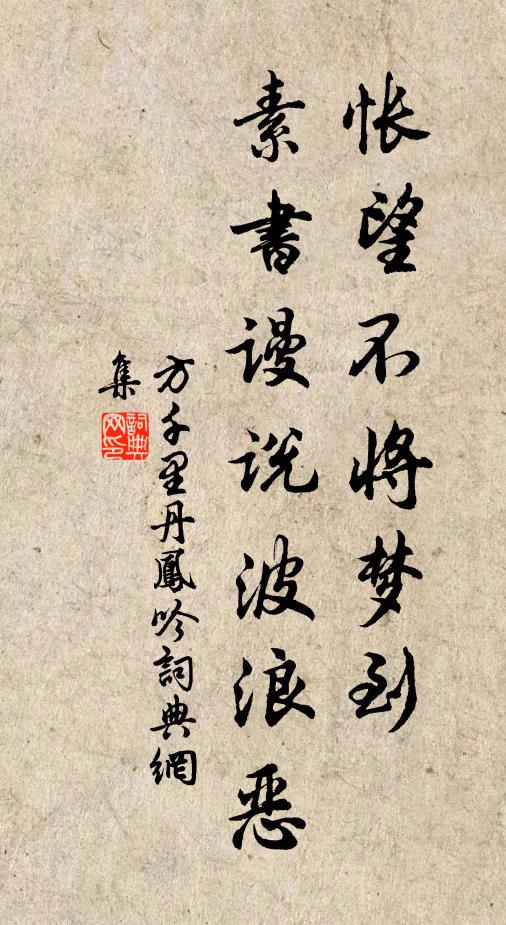 怅望不将梦到
素書谩说波浪恶
方千里丹鳳吟詞典網
集
詞典
网印